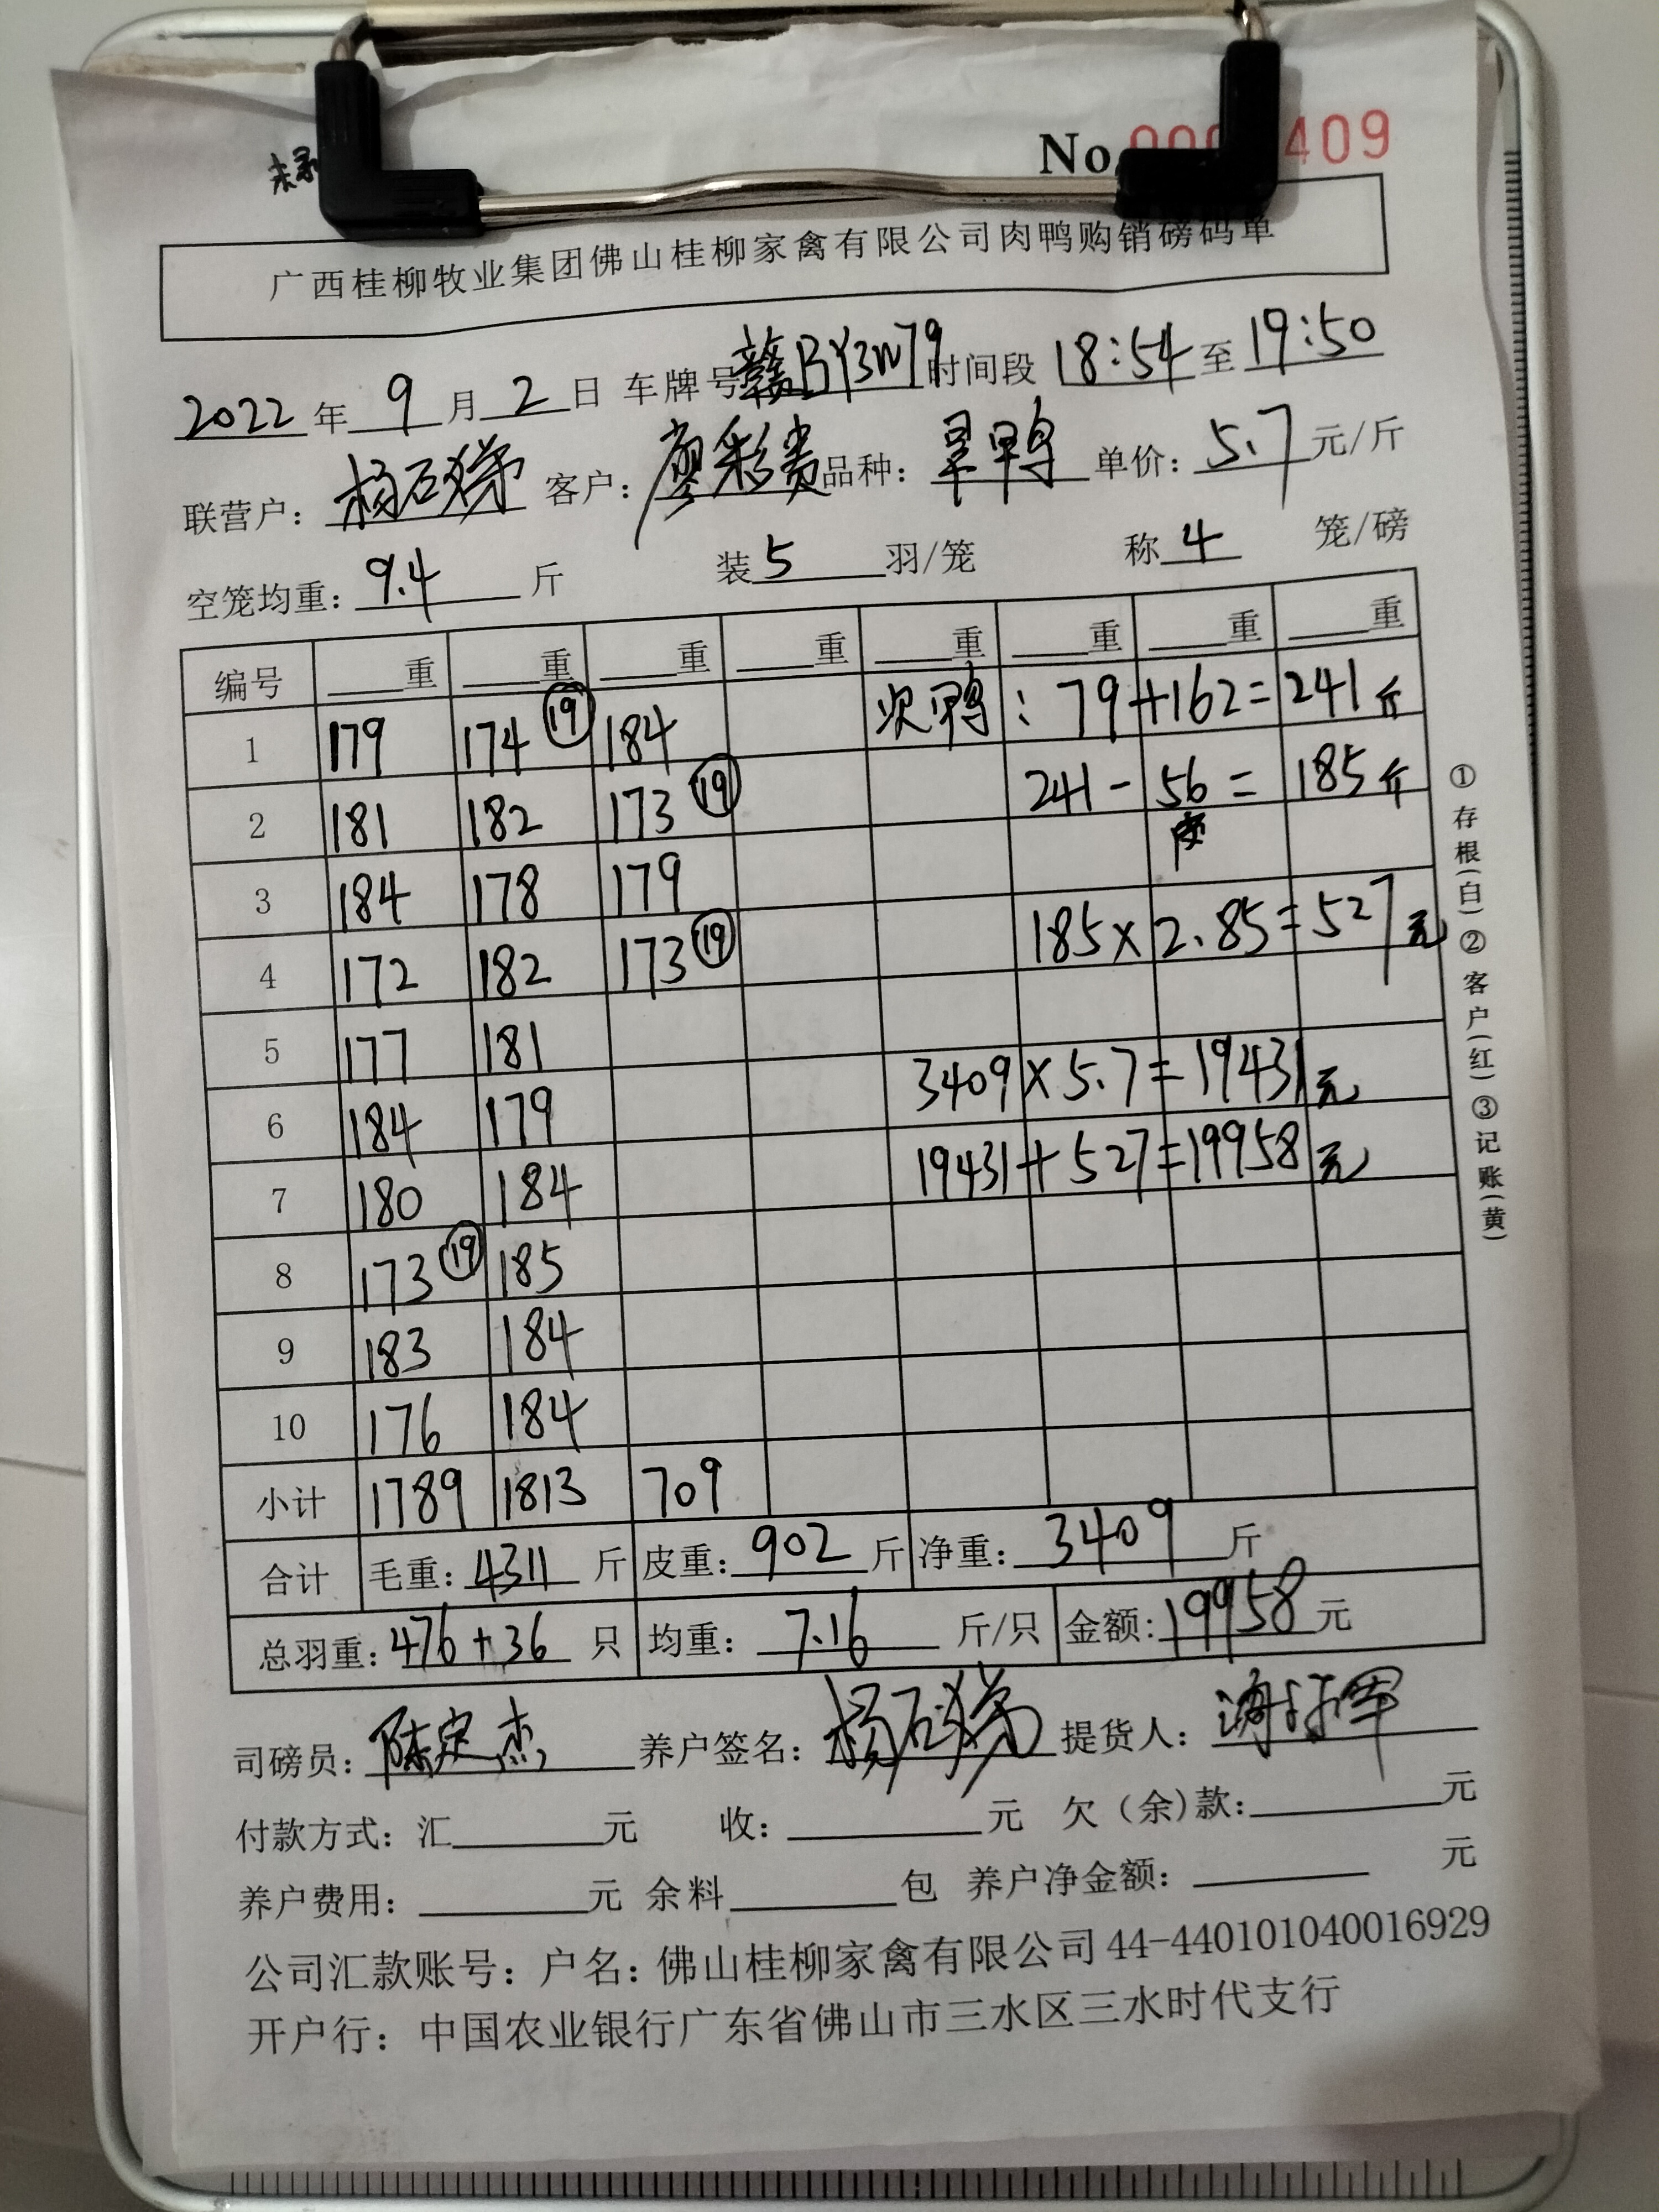 No 409
广西桂柳牧业集团佛山桂柳家禽有限公司肉鸭购销磅码单
2022年9月2日 车牌号赣BY3W79时间段 18:54至19:50
联营户: 杨石 客户: 廖彩贵 品种: 旱鸭 单价: 5.7元/斤
空笼均重: 9.4 斤 装5羽/笼 称4 笼/磅
编号 重 重 重 重 重 重 重 重
1 179 174 ⑲ 184 次鸭: 79+162=241斤
2 181 182 173 ⑲ 241-56=185斤
皮
3 184 178 179
4 172 182 173 ⑲ 185×2.85=527元
5 177 181
6 184 179 3409×5.7=19431元
7 180 184 19431+527=19958元
8 173 ⑲ 185
9 183 184
10 176 184
小计 1789 1813 709
合计 毛重: 4311 斤 皮重: 902 斤 净重: 3409 斤
总羽重: 476+36 只 均重: 7.16 斤/只 金额: 19958元
司磅员: 陈定杰 养户签名: 杨石 提货人: 谢
付款方式: 汇 元 收: 元 欠(余)款: 元
养户费用: 元 余料 包 养户净金额: 元
公司汇款账号: 户名: 佛山桂柳家禽有限公司 44-440101040016929
开户行: 中国农业银行广东省佛山市三水区三水时代支行
①存根(白)②客户(红)③记账(黄)